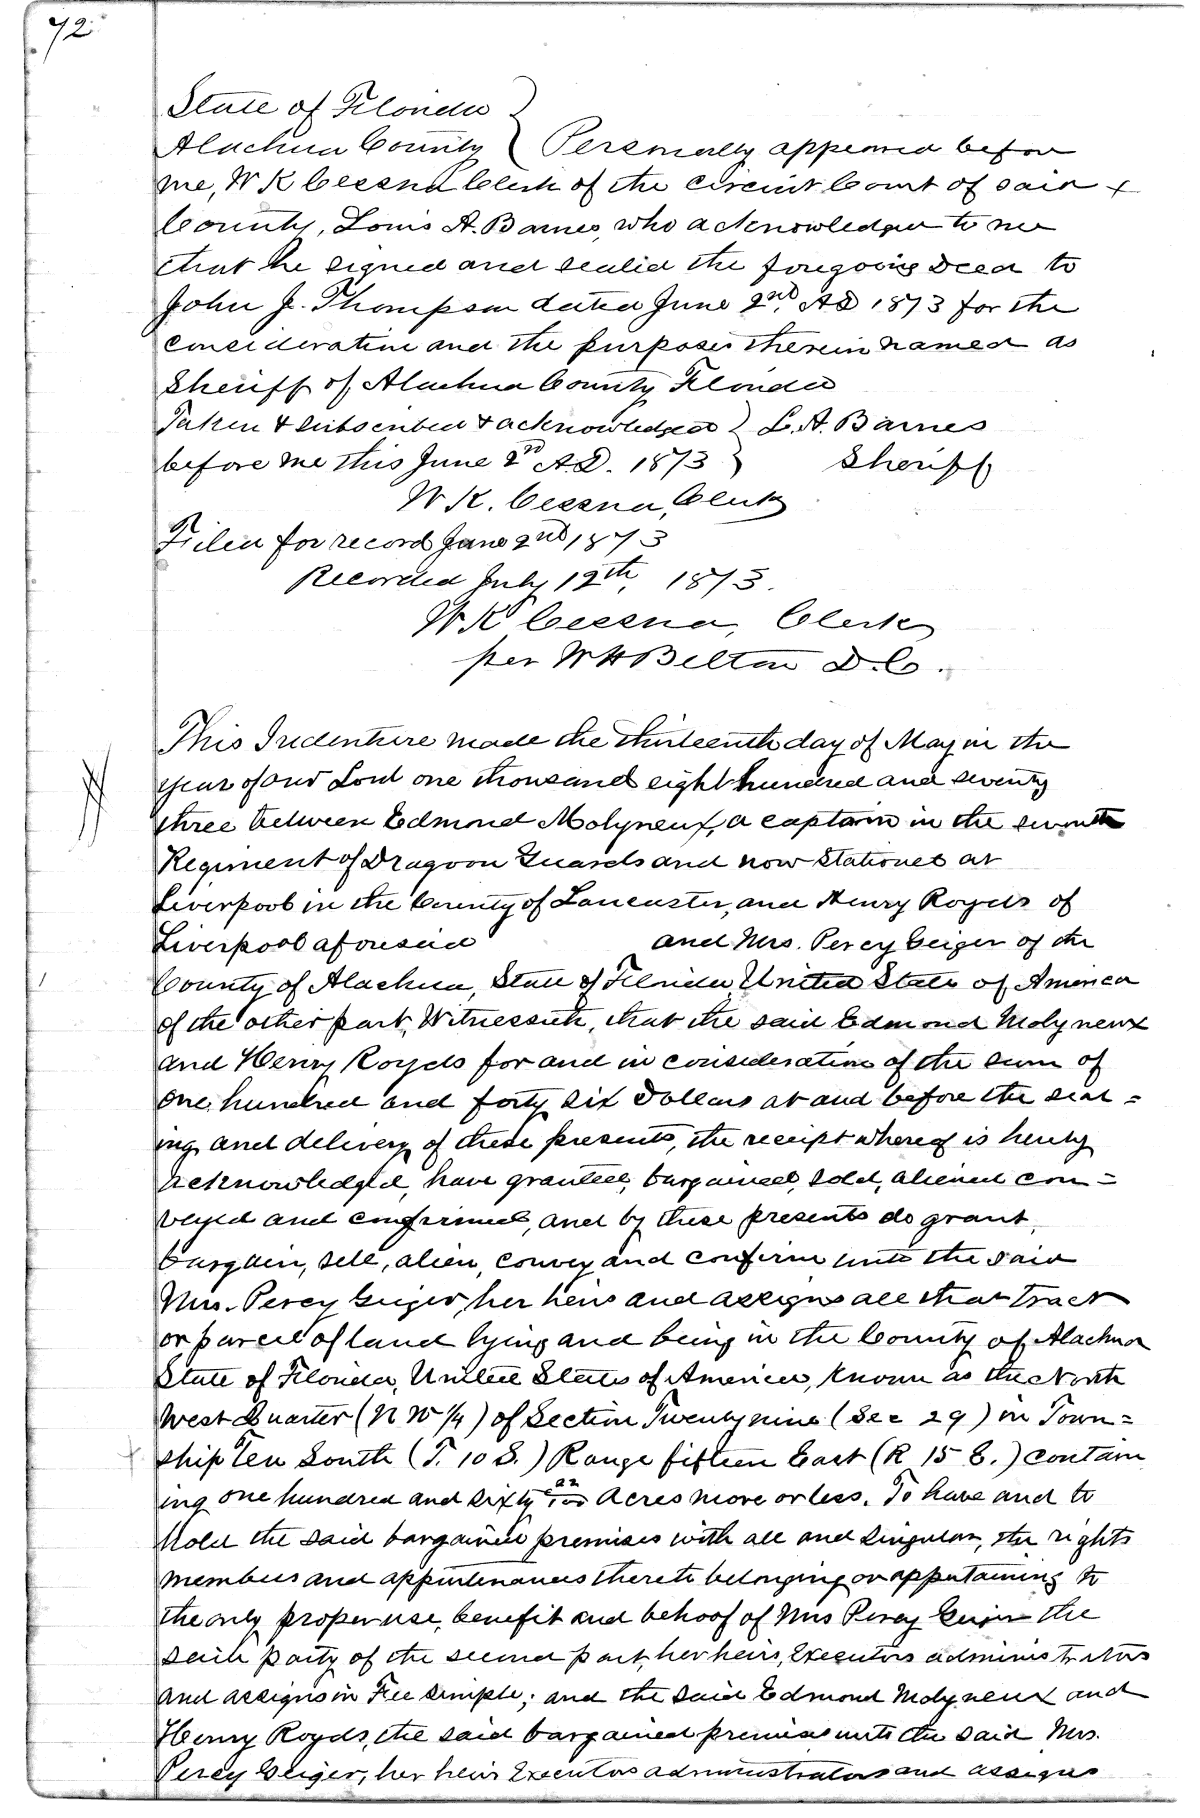 72
State of Florida
Alachua County } Personally appeared before
me, W K Cessna Clerk of the circuit Court of said +
County, Louis A. Barnes, who acknowledged to me
that he signed and sealed the foregoing Deed to
John J. Thompson dated June 2nd, AD 1873 for the
consideration and the purposes therein named as
Sheriff of Alachua County Florida
Taken & subscribed & acknowledged } L. A. Barnes
before me this June 2nd A.D. 1873 } Sheriff
W. K. Cessna, Clerk
Filed for record June 2nd 1873
Recorded July 12th, 1873.
W K Cessna, Clerk
per W H Belton D. C.
This Indenture made the thirteenth day of May in the
year of our Lord one thousand eight hundred and seventy
three between Edmond Molyneux, a captain in the seventh
Regiment of Dragoon Guards and now stationed at
Liverpool in the County of Lancaster, and Henry Royds of
Liverpool aforesaid and Mrs. Percy Geiger of the
County of Alachua, State of Florida, United States of America
of the other part, Witnesseth, that the said Edmond Molyneux
and Henry Royds for and in consideration of the sum of
one hundred and forty six Dollars at and before the seal=
ing and delivery of these presents, the receipt whereof is hereby
acknowledged, have granted, bargained, sold, aliened con=
veyed and confirmed, and by these presents do grant,
bargain, sell, alien, convey and confirm unto the said
Mrs. Percy Geiger, her heirs and assigns all that tract
or parcel of land lying and being in the County of Alachua
State of Florida, United States of America, known as the North
West Quarter (N W 1/4) of Section Twenty nine (Sec 29) in Town=
ship Ten South (T. 10 S.) Range fifteen East (R 15 E.) contain
ing one hundred and sixty Acres more or less. To have and to
hold the said bargained premises with all and singular, the rights
members and appurtenances thereto belonging or appertaining to
the only proper use, benefit and behoof of Mrs Percy Geiger the
said party of the second part, her heirs, Executors administrators
and assigns in Fee simple; and the said Edmond Molyneux and
Henry Royds, the said bargained premises unto the said Mrs.
Percy Geiger, her heirs Executors administrators and assigns